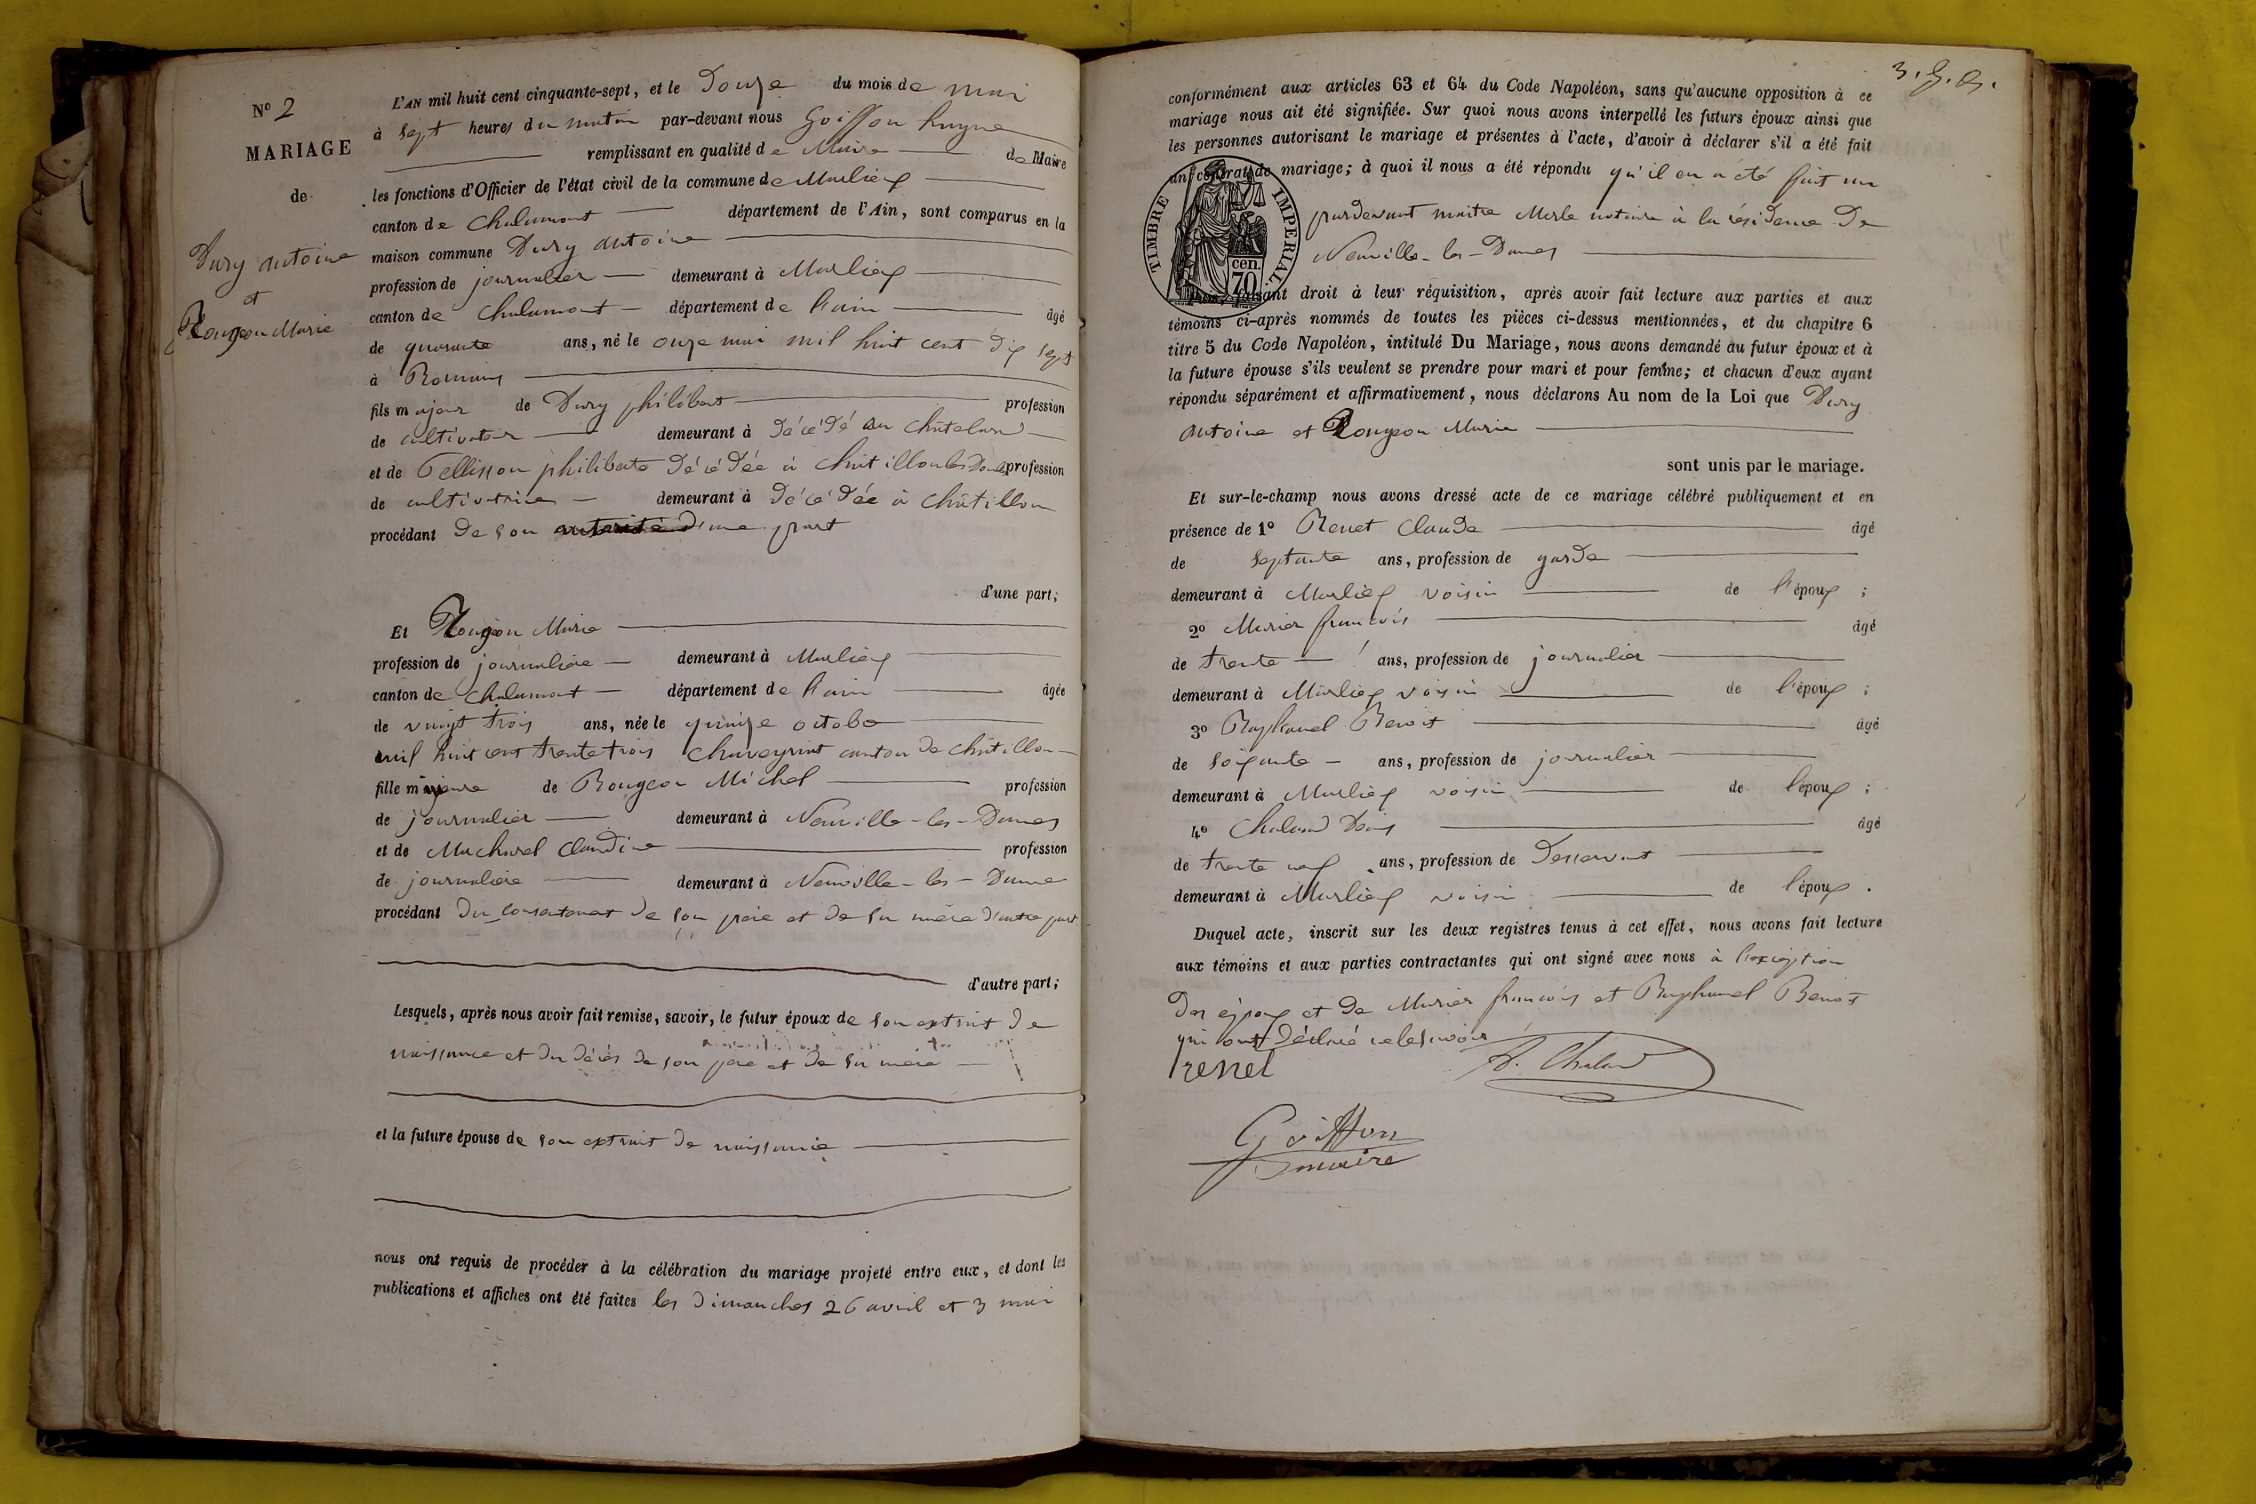 Nº 2
MARIAGE
de
Dury antoine
et
Rougeon Marie
L'AN mil huit cent cinquante-sept, et le Douze du mois de mai
à sept heures du matin par-devant nous Goiffon
remplissant en qualité de Maire de Maire
les fonctions d'Officier de l'état civil de la commune de Marlieux
canton de Chalamont département de l'Ain, sont comparus en la
maison commune Dury antoine
profession de journalier demeurant à Marlieux
canton de Chalamont département de l'ain âgé
de quarante ans, né le onze mai mil huit cent dix sept
à Romans
fils majeur de Dury philibert profession
de cultivateur demeurant à Décédé au Châtelard
et de Pellisson philiberte Décédée à Chatillon les Dombes profession
de cultivatrice demeurant à Décédée à Châtillon
procédant De son autorité D'une part
d'une part;
Et Rougeon Marie
profession de journalière demeurant à Marlieux
canton de Chalamont département de l'ain âgée
de vingt trois ans, née le quinze octobre
mil huit cent trente trois Chaveyriat canton de Châtillon
fille majeure de Rougeon Michel profession
de journalier demeurant à Neuville-les-Dames
et de Macharel Claudine profession
de journalière demeurant à Neuville-les-Dames
procédant Du consentement De son père et De sa mère D'autre part
d'autre part;
Lesquels, après nous avoir fait remise, savoir, le futur époux de son extrait De
naissance et Du décès De son père et De sa mère
et la future épouse de son extrait De naissance
nous ont requis de procéder à la célébration du mariage projeté entre eux, et dont les
publications et affiches ont été faites les Dimanches 26 avril et 3 mai
conformément aux articles 63 et 64 du Code Napoléon, sans qu'aucune opposition à ce
mariage nous ait été signifiée. Sur quoi nous avons interpellé les futurs époux ainsi que
les personnes autorisant le mariage et présentes à l'acte, d'avoir à déclarer s'il a été fait
un contrat de mariage; à quoi il nous a été répondu qu'il en a été fait un
pardevant maitre Merle notaire à la résidence De
Neuville-les-Dames
TIMBRE IMPERIAL
70 cen.
faisant droit à leur réquisition, après avoir fait lecture aux parties et aux
témoins ci-après nommés de toutes les pièces ci-dessus mentionnées, et du chapitre 6
titre 5 du Code Napoléon, intitulé Du Mariage, nous avons demandé au futur époux et à
la future épouse s'ils veulent se prendre pour mari et pour femme; et chacun d'eux ayant
répondu séparément et affirmativement, nous déclarons Au nom de la Loi que Dury
antoine et Rougeon Marie
sont unis par le mariage.
Et sur-le-champ nous avons dressé acte de ce mariage célébré publiquement et en
présence de 1º Renet Claude âgé
de septante ans, profession de garde
demeurant à Marlieux voisin de l'époux ;
2º Murier françois âgé
de trente ans, profession de journalier
demeurant à Marlieux voisin de l'époux ;
3º Raphanel Benoit âgé
de soixante ans, profession de journalier
demeurant à Marlieux voisin de l'époux ;
4º Chaland Denis âgé
de trente neuf ans, profession de Desservant
demeurant à Marlieux voisin de l'époux .
Duquel acte, inscrit sur les deux registres tenus à cet effet, nous avons fait lecture
aux témoins et aux parties contractantes qui ont signé avec nous à l'exception
Des époux et De Murier françois et Raphanel Benoit
qui ont Déclaré ne le savoir
renet
D. Chaland
Goiffon
maire